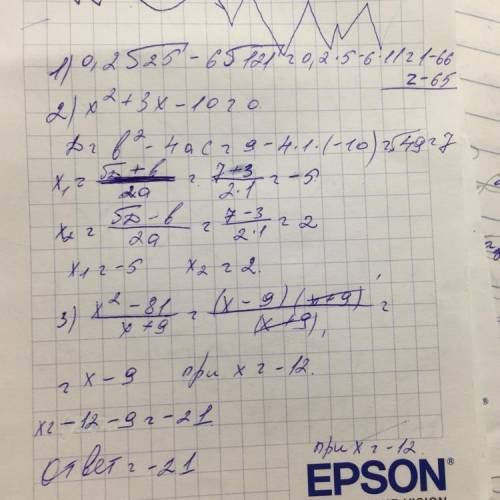 1) 0,2√25 - 6√121 = 0,2·5-6·11=1-66
=-65
2) x²+3x-10=0
D = b²-4ac = 9-4·1·(-10)=√49=7
x₁ = √D+b/2a = 7+3/2·1 = -5
x₂ = √D-b/2a = 7-3/2·1 = 2
x₁=-5 x₂=2.
3) x²-81/x+9 = (x-9)(x+9)/(x+9) =
= x-9 при x=-12.
x=-12-9=-21
Ответ = -21
при x=-12.
EPSON®